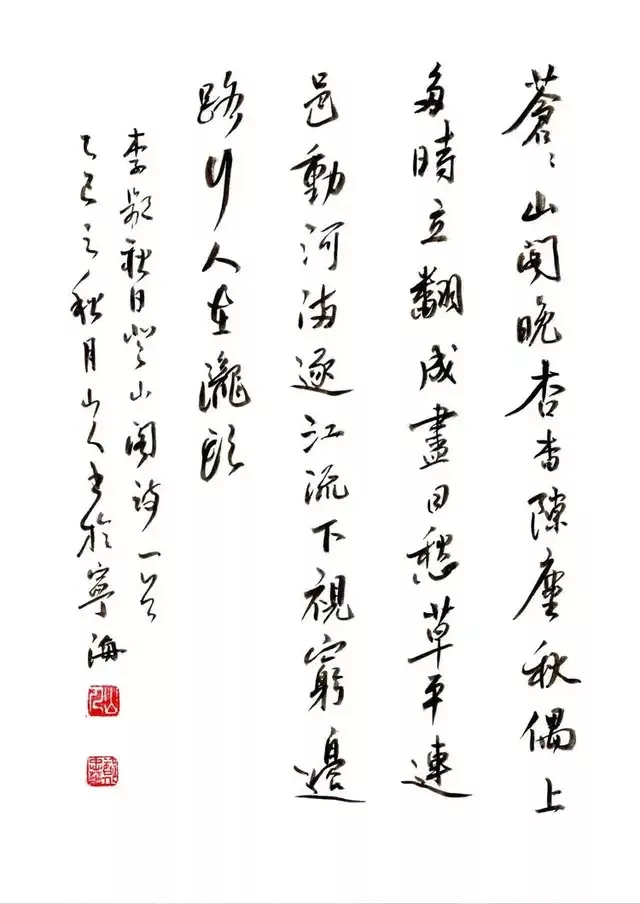 蒼々山閣晚杳杳隙塵秋偶上
多時立翻成盡日愁草平連
邑動河滿逐江流下視窮邊
路行人在隴頭
李頻秋日登山閣詩一首
乙巳之秋月山人書於寧海